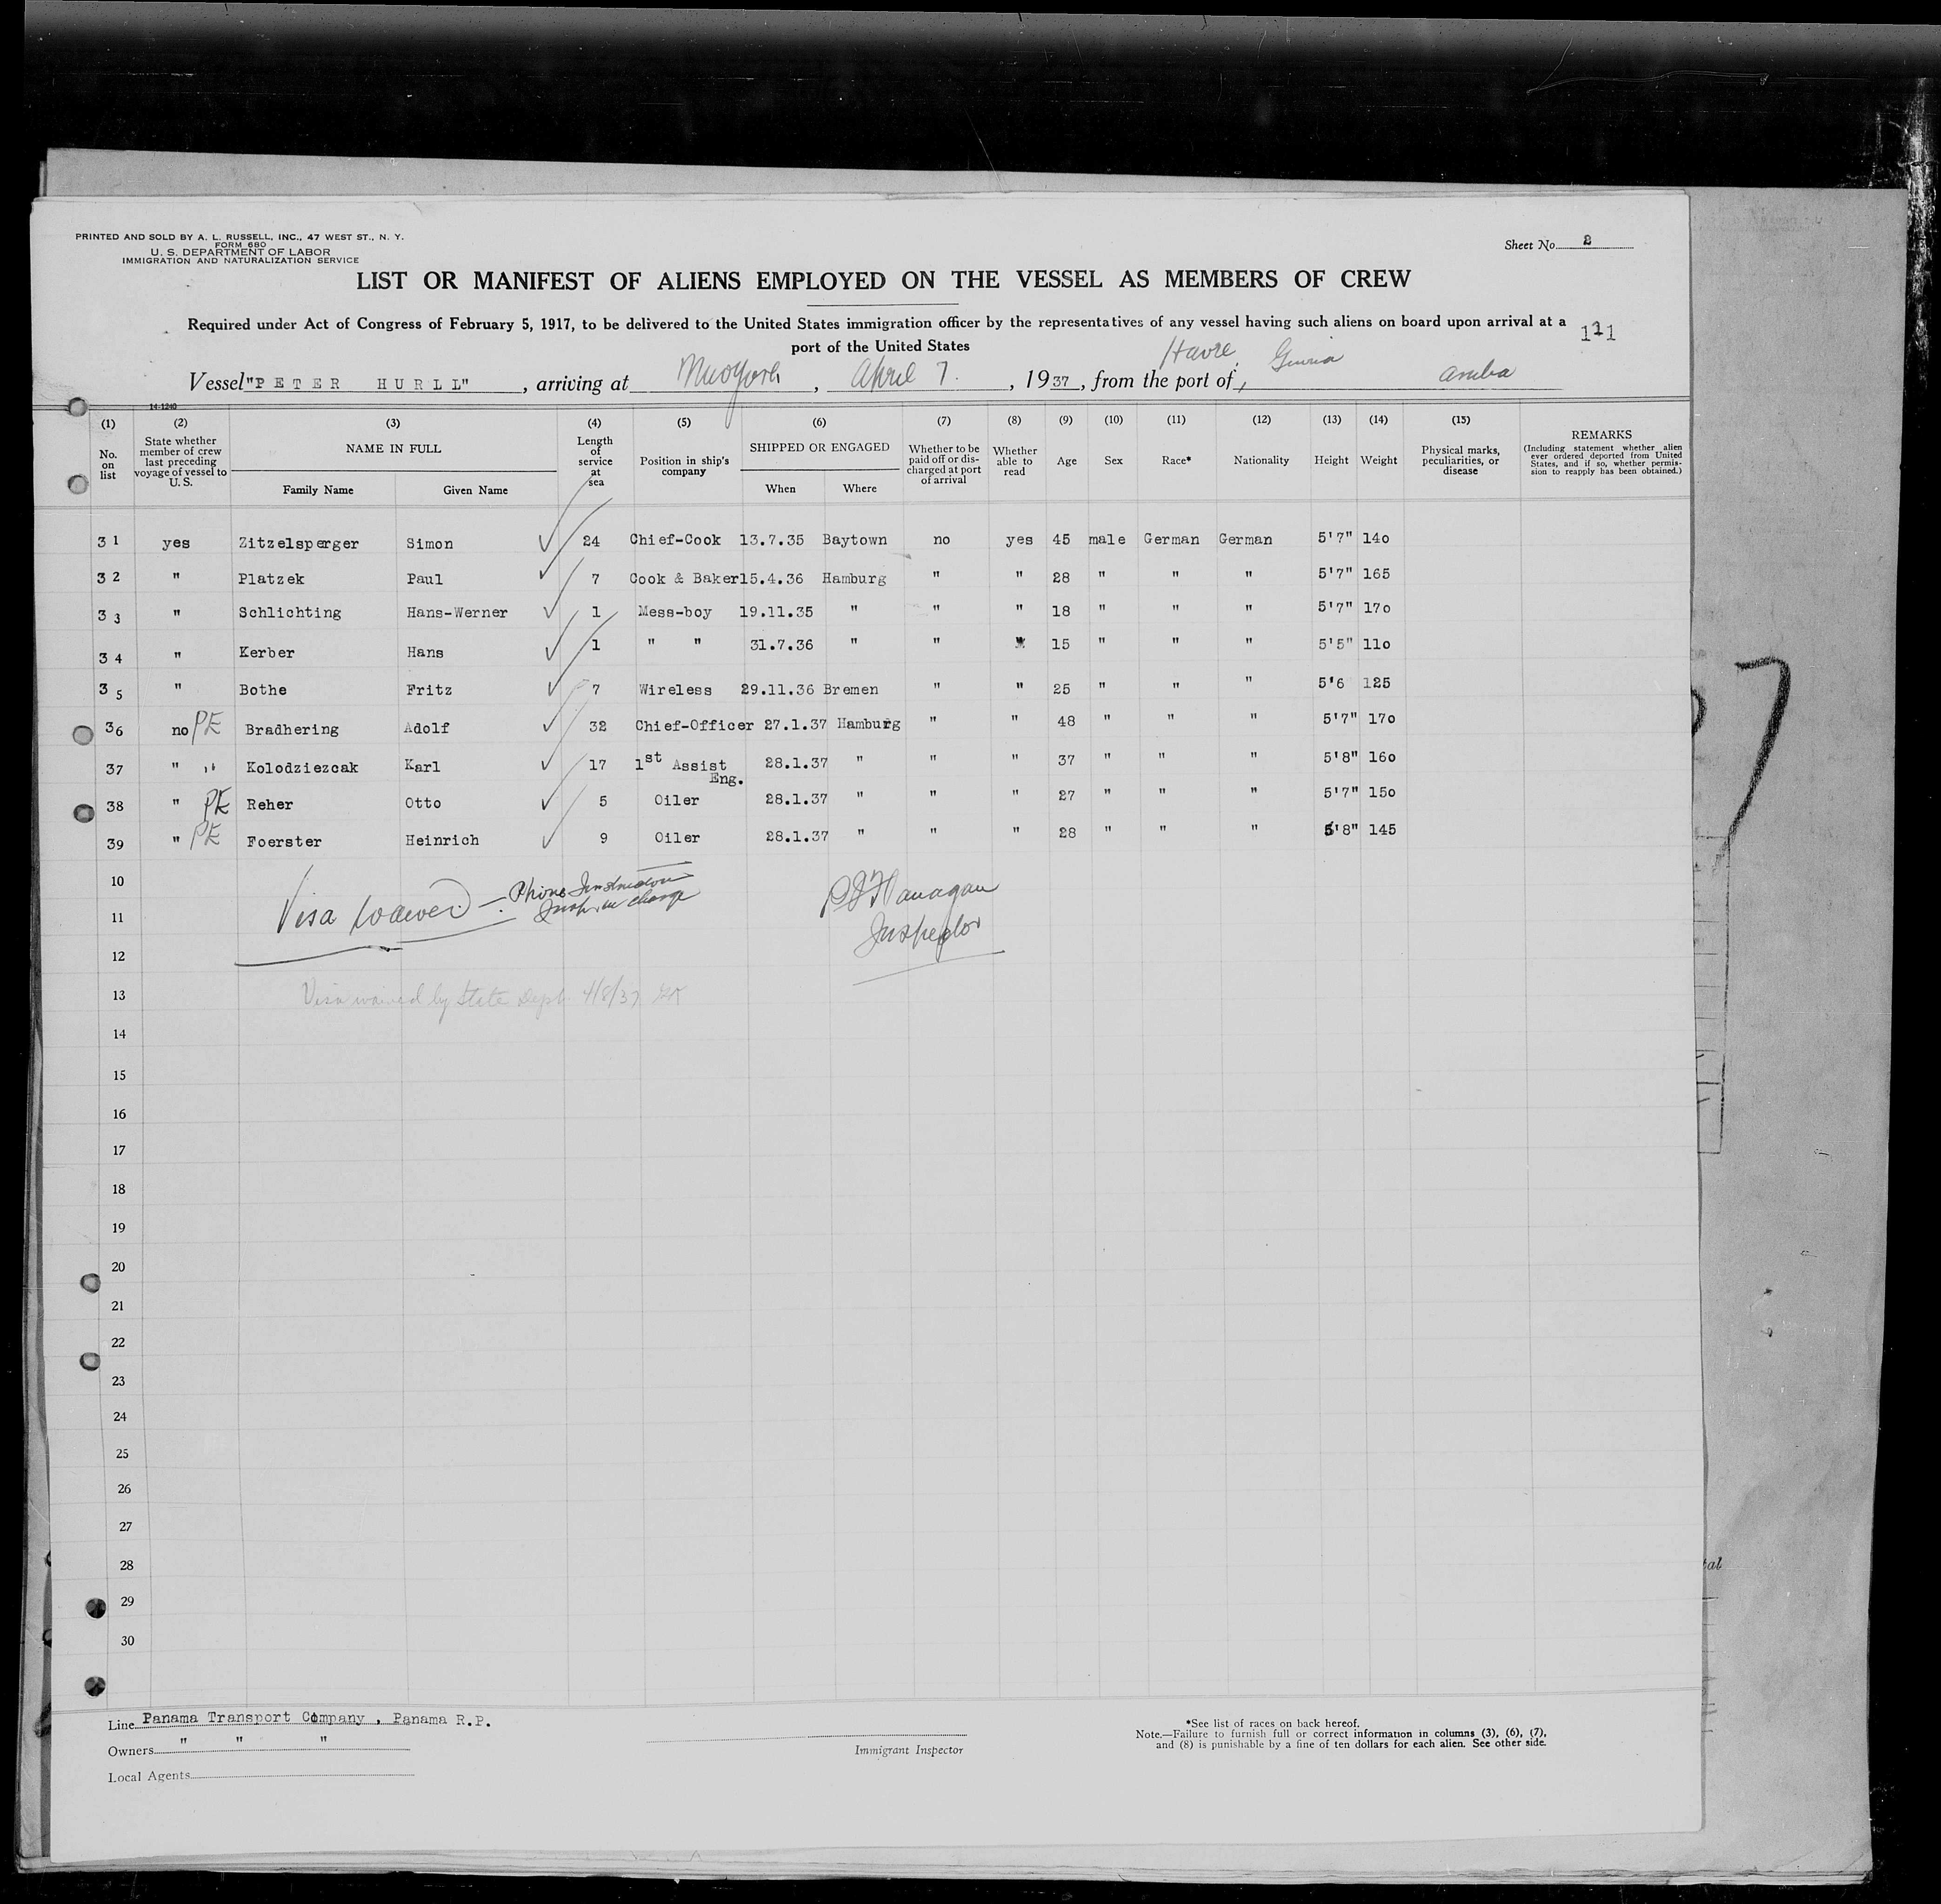 PRINTED AND SOLD BY A. L. RUSSELL, INC., 47 WEST ST., N. Y.
FORM 680
U. S. DEPARTMENT OF LABOR
IMMIGRATION AND NATURALIZATION SERVICE
Sheet No. 2
LIST OR MANIFEST OF ALIENS EMPLOYED ON THE VESSEL AS MEMBERS OF CREW
Required under Act of Congress of February 5, 1917, to be delivered to the United States immigration officer by the representatives of any vessel having such aliens on board upon arrival at a
port of the United States
131
Vessel "PETER HURLL", arriving at New York, April 7., 1937, from the port of, Havre, Guiria Aruba
14-1240
(1) (2) (3) (4) (5) (6) (7) (8) (9) (10) (11) (12) (13) (14) (15)
No. on list
State whether member of crew last preceding voyage of vessel to U. S.
NAME IN FULL
Family Name Given Name
Length of service at sea
Position in ship's company
SHIPPED OR ENGAGED
When Where
Whether to be paid off or discharged at port of arrival
Whether able to read
Age Sex Race* Nationality Height Weight
Physical marks, peculiarities, or disease
REMARKS
(Including statement whether alien ever ordered deported from United States, and if so, whether permission to reapply has been obtained.)
31 yes Zitzelsperger Simon 24 Chief-Cook 13.7.35 Baytown no yes 45 male German German 5'7" 140
32 " Platzek Paul 7 Cook & Baker 15.4.36 Hamburg " " 28 " " " 5'7" 165
33 " Schlichting Hans-Werner 1 Mess-boy 19.11.35 " " " 18 " " " 5'7" 170
34 " Kerber Hans 1 " " 31.7.36 " " " 15 " " " 5'5" 110
35 " Bothe Fritz 7 Wireless 29.11.36 Bremen " " 25 " " " 5'6 125
36 no PE Bradhering Adolf 32 Chief-Officer 27.1.37 Hamburg " " 48 " " " 5'7" 170
37 " " Kolodziezcak Karl 17 1st Assist Eng. 28.1.37 " " " 37 " " " 5'8" 160
38 " PE Reher Otto 5 Oiler 28.1.37 " " " 27 " " " 5'7" 150
39 " PE Foerster Heinrich 9 Oiler 28.1.37 " " " 28 " " " 5'8" 145
10
11 Visa waived — Phone Instruction Insp. in charge PJ Flanagan Inspector
12
13 Visa waived by State Dept 4/8/37
14
15
16
17
18
19
20
21
22
23
24
25
26
27
28
29
30
Line Panama Transport Company , Panama R.P.
Owners " " "
Local Agents
Immigrant Inspector
*See list of races on back hereof.
Note.—Failure to furnish full or correct information in columns (3), (6), (7),
and (8) is punishable by a fine of ten dollars for each alien. See other side.
tal